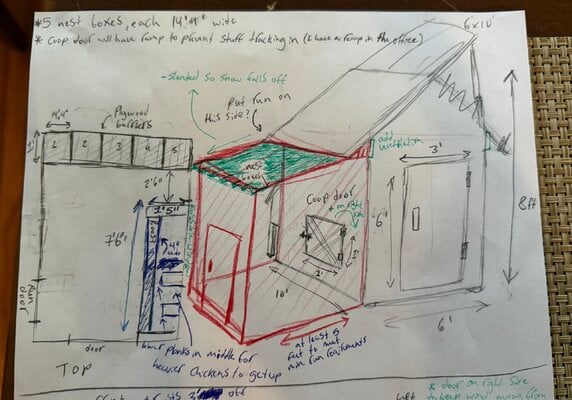 *5 nest boxes, each 14'4" wide
* Coop door will have ramp to prevent stuff tracking in (I have a ramp in the office)
6x10'
-slanted so snow falls off
put run on
this side?
Plywood
barriers
14'4"
1'
1
2
3
4
5
nest
boxes
add
ventilation
3'
8ft
2'6"
1'5"
7'6"
4"
Coop door
+ on right
side
6'
1'
2'
10'
6'
Run
door
door
TOP
lower planks in middle for
heavier chickens to get up
at least 5
feet to meet
min run requirments
* door on right side
to keep wind away from
left
off